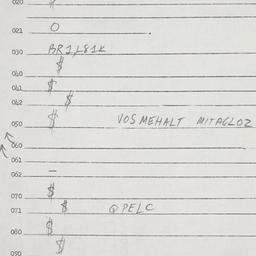 020
021 O
030 BR1,L81K
$
040
041 $
042 $
050 $ VOSMEHALT MITAGLOZ
060
061
062 —
070 $
071 $ QPELC
080 $
$
090